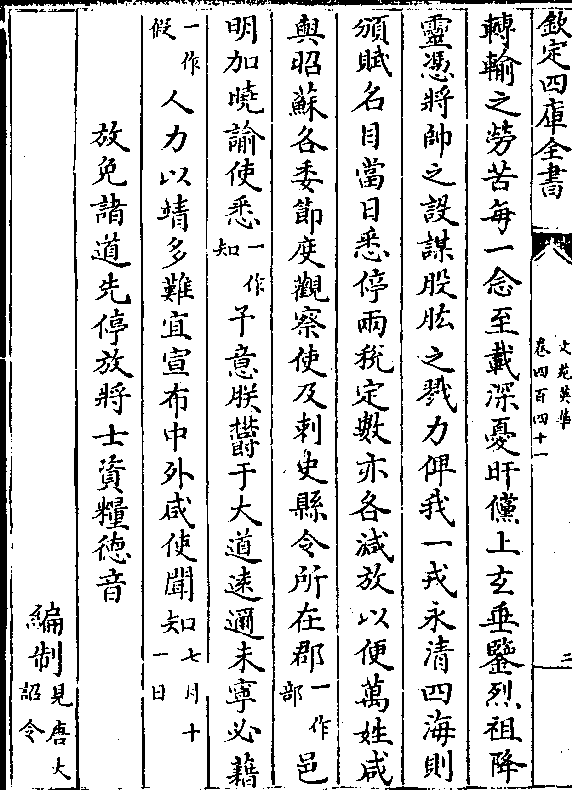 欽定四庫全書
文苑英華
卷四百四十一
三
轉輸之勞苦每一念至載深憂旰儻上玄垂鑒烈祖降
靈憑將帥之設謀股肱之戮力俾我一戎永清四海則
頒賦名目當日悉停兩稅定數亦各減放以便萬姓咸
與昭蘇各委節度觀察使及刺史縣令所在郡一作部邑
明加曉諭使悉一作知予意朕欝于大道遠邇未寧必藉
一作假人力以靖多難宜宣布中外咸使聞知七月十一日
放免諸道先停放將士資糧德音
編制見唐大詔令